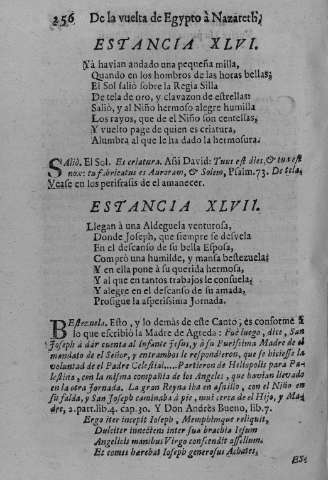 256 De la vuelta de Egypto à Nazareth,
ESTANCIA XLVI.
Yà havian andado una pequeña milla,
Quando en los hombros de las horas bellas;
El Sol saliò sobre la Regia Silla
De tela de oro, y clavazon de estrellas:
Saliò, y al Niño hermoso alegre humilla
Los rayos, que de el Niño son centellas,
Y vuelto page de quien es criatura,
Alumbra al que le ha dado la hermosura.
Saliò. El Sol. Es criatura. Assi David: Tuus est dies, & tua est
nox: tu fabricatus es Auroram, & Solem, Psalm. 73. De tela,
Vease en los perifrasis de el amanecer.
ESTANCIA XLVII.
Llegan à una Aldeguela venturosa,
Donde Joseph, que siempre se desvela
En el descanso de su bella Esposa,
Comprò una humilde, y mansa bestezuela:
Y en ella pone à su querida hermosa,
Y al que en tantos trabajos le consuela;
Y alegre en el descanso de su amada,
Prosigue la asperissima Jornada.
Bestezuela. Esto, y lo demàs de este Canto, es conforme à
lo que escribiò la Madre de Agreda: Fue luego, dice, San
Joseph à dar cuenta al Infante Jesus, y à su Purissima Madre de el
mandato de el Señor, y entrambos le respondieron, que se hiciesse la
voluntad de el Padre Celestial.....Partieron de Heliopolis para Pa-
lestina, con la misma compañia de los Angeles, que havian llevado
en la otra jornada. La gran Reyna iba en asnillo, con el Niño en
su falda, y San Joseph caminaba à pie, muy cerca de el Hijo, y Ma-
dre, 2. part. lib. 4. cap. 30. Y Don Andrès Bueno, lib. 7.
Ergo iter incepit Ioseph, Memphimque reliquit,
Dulciter innectens inter sua brachia Iesum
Angelicis manibus Virgo conscendit asellum.
Et comes hærebat Ioseph generosus Achates,